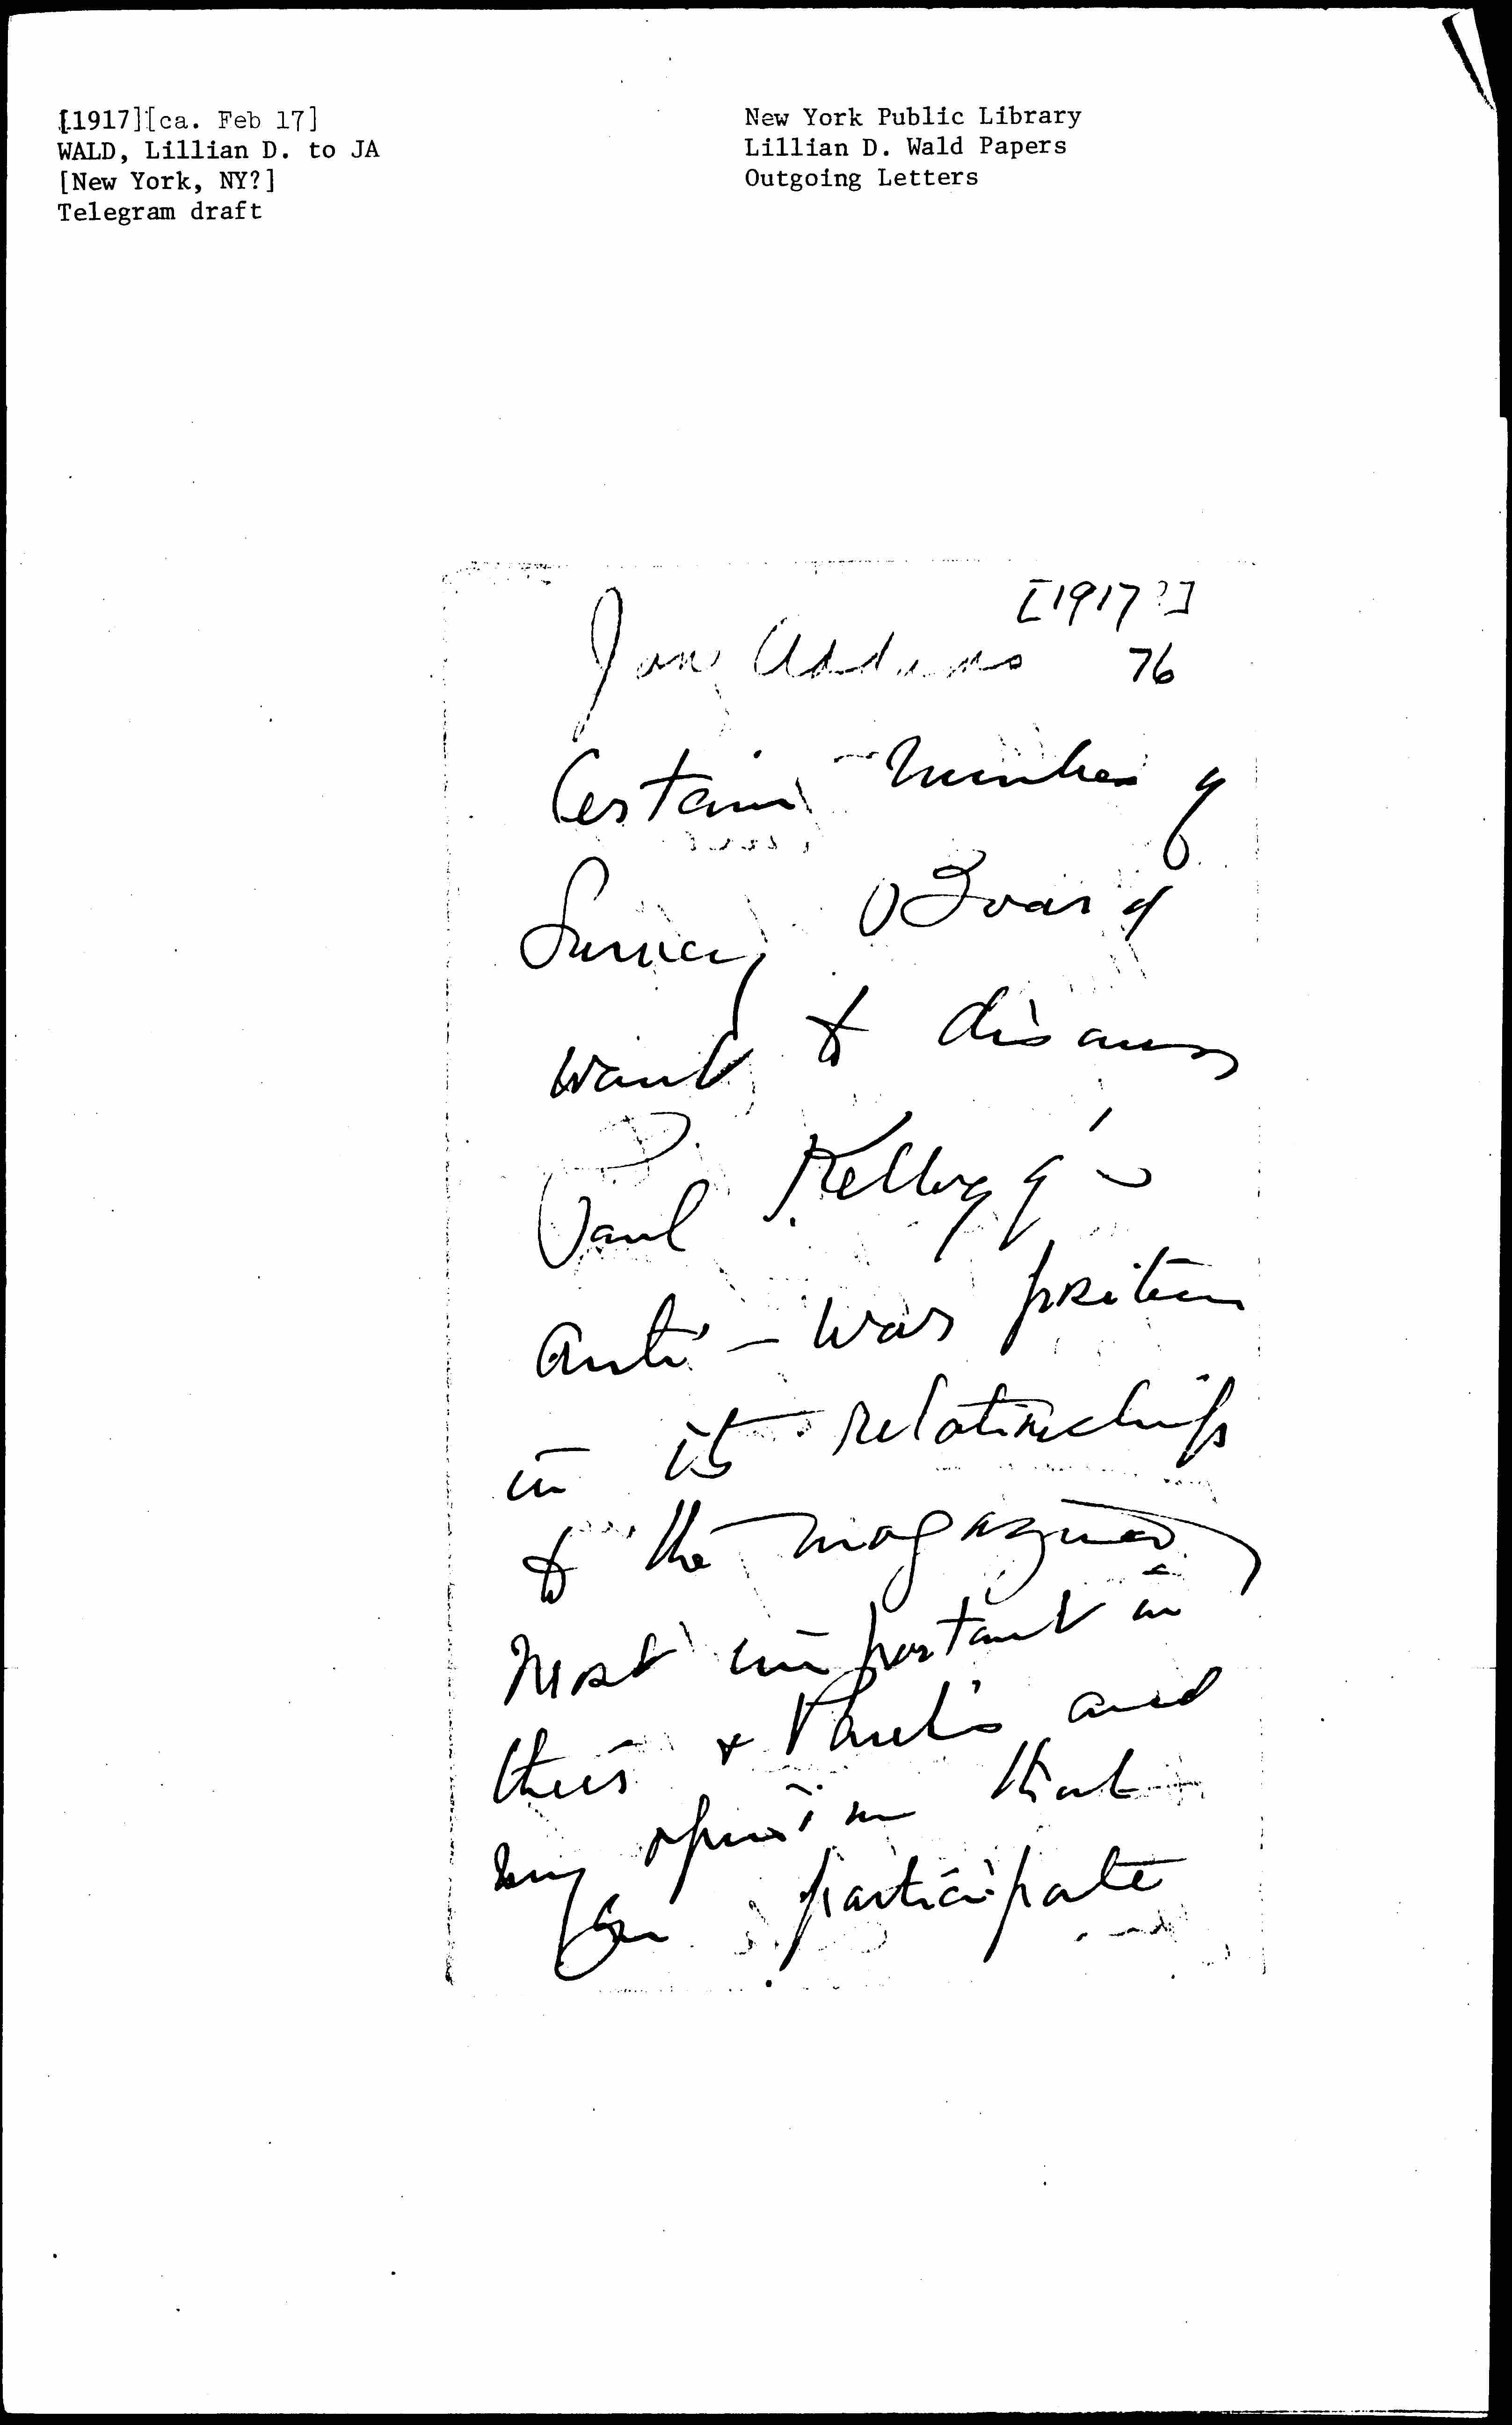 [1917][ca. Feb 17]
WALD, Lillian D. to JA
[New York, NY?]
Telegram draft
New York Public Library
Lillian D. Wald Papers
Outgoing Letters
[1917?]
Jane Addams 76
Certain number of
Survey Board
want to discuss
Paul Kellogg's
anti-war position
in its relationship
to the magazine
most important in
their & Paul's and
my opinion that
you participate